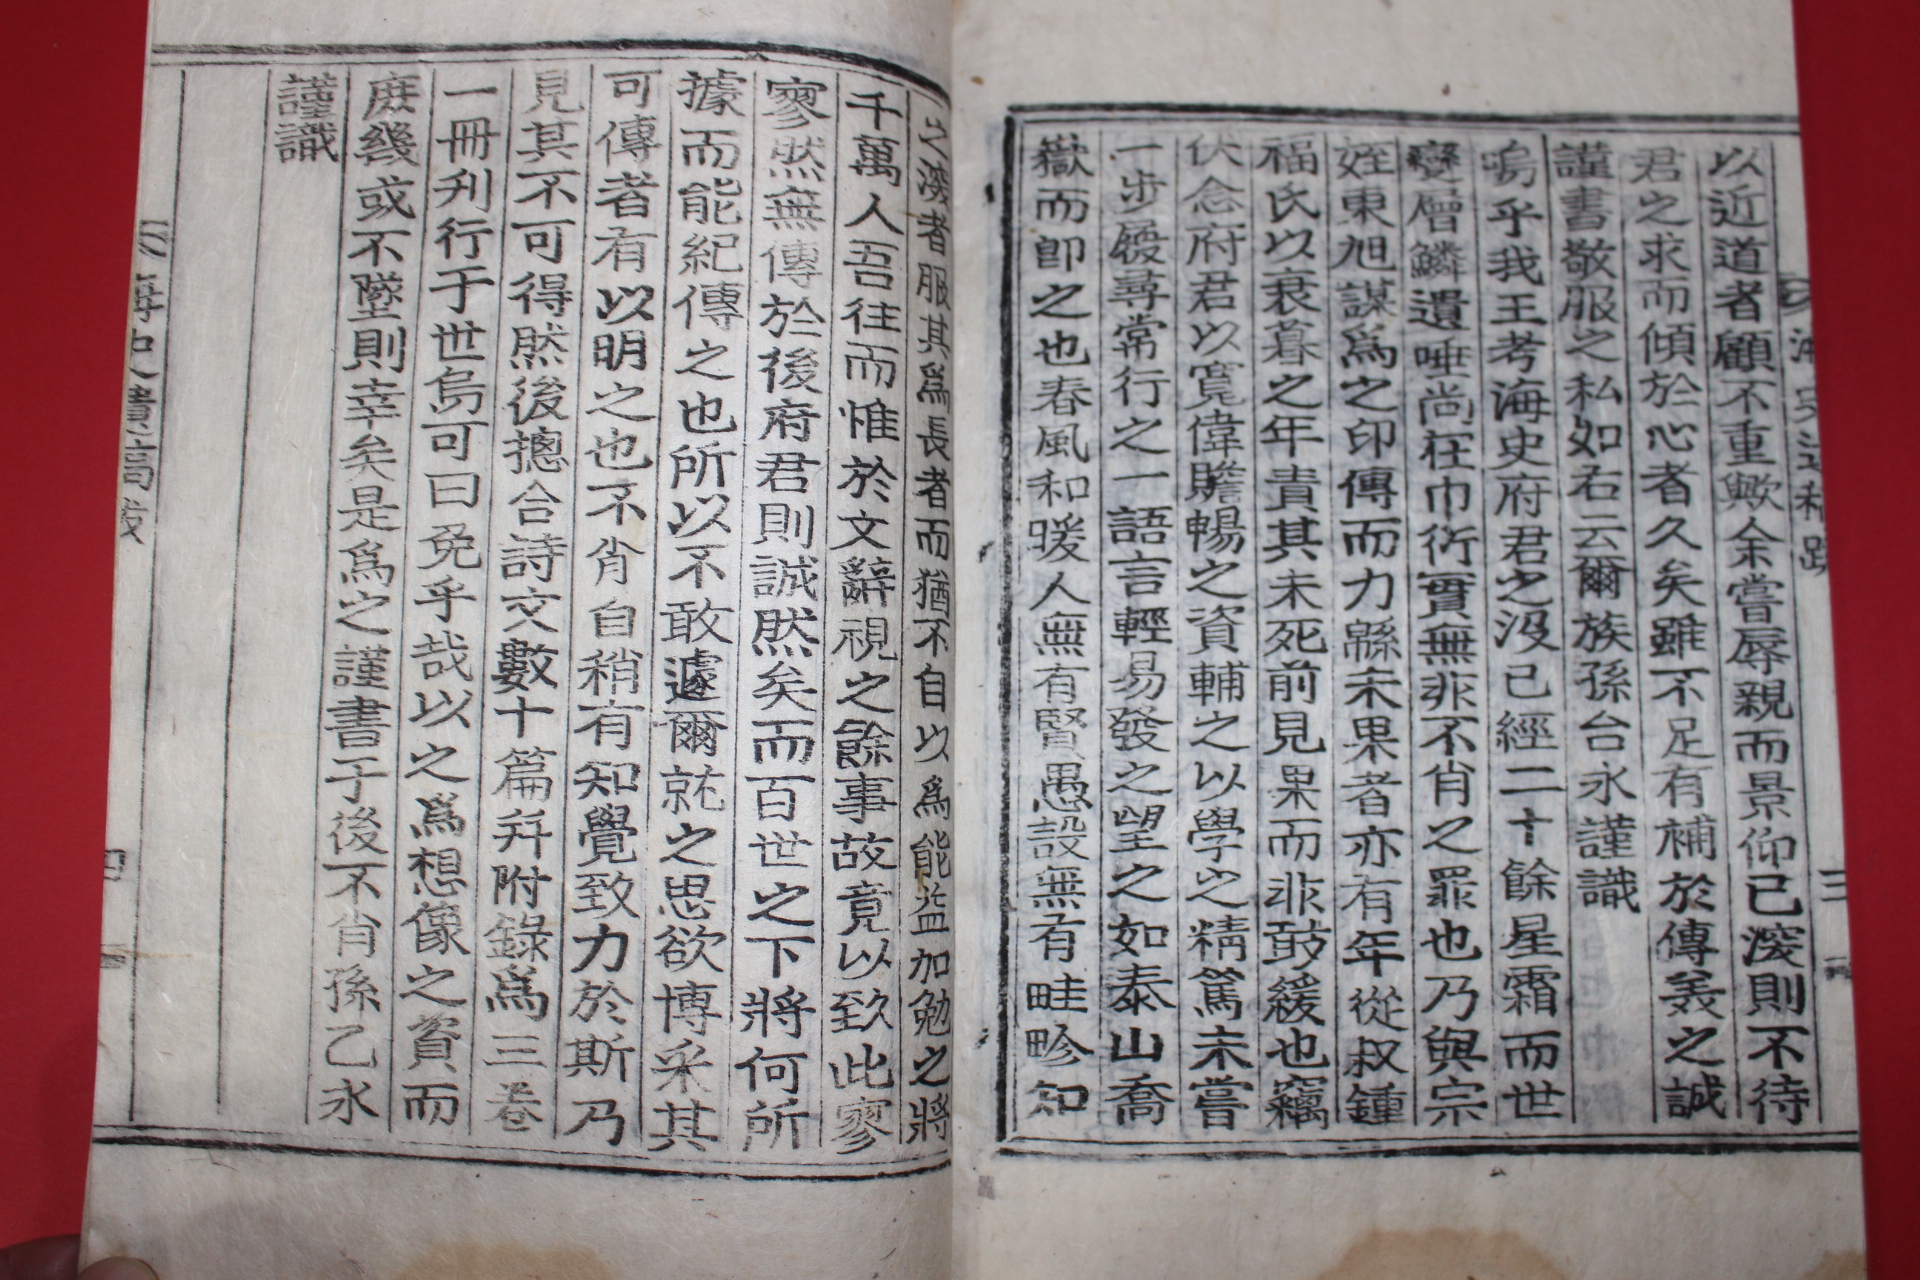 以近道者顧不重歟余嘗辱親而景仰已深則不待
君之求而傾於心者久矣雖不足有補於傳義之誠
謹書敬服之私如右云爾族孫台永謹識
嗚乎我王考海史府君之沒已經二十餘星霜而世
變層鱗遺唾尚在巾衍實無非不肖之罪也乃與宗
姪東旭謀爲之印傳而力緜未果者亦有年從叔鍾
福氏以衰暮之年責其未死前見果而非敢緩也竊
伏念府君以寬偉贍暢之資輔之以學之精篤未嘗
一步屐尋常行之一語言輕易發之望之如泰山喬
嶽而卽之也春風和暖人無有賢愚設無有畦畛知
之淺者服其爲長者而猶不自以爲能益加勉之將
千萬人吾往而惟於文辭視之餘事故竟以致此寥
寥然無傳於後府君則誠然矣而百世之下將何所
據而能紀傳之也所以不敢遽爾就之思欲博采其
可傳者有以明之也不肖自稍有知覺致力於斯乃
見其不可得然後摠合詩文數十篇幷附錄爲三卷
一冊刋行于世烏可曰免乎哉以之爲想像之資而
庶幾或不墜則幸矣是爲之謹書于後不肖孫乙永
謹識
海史遺稿跋
四
三